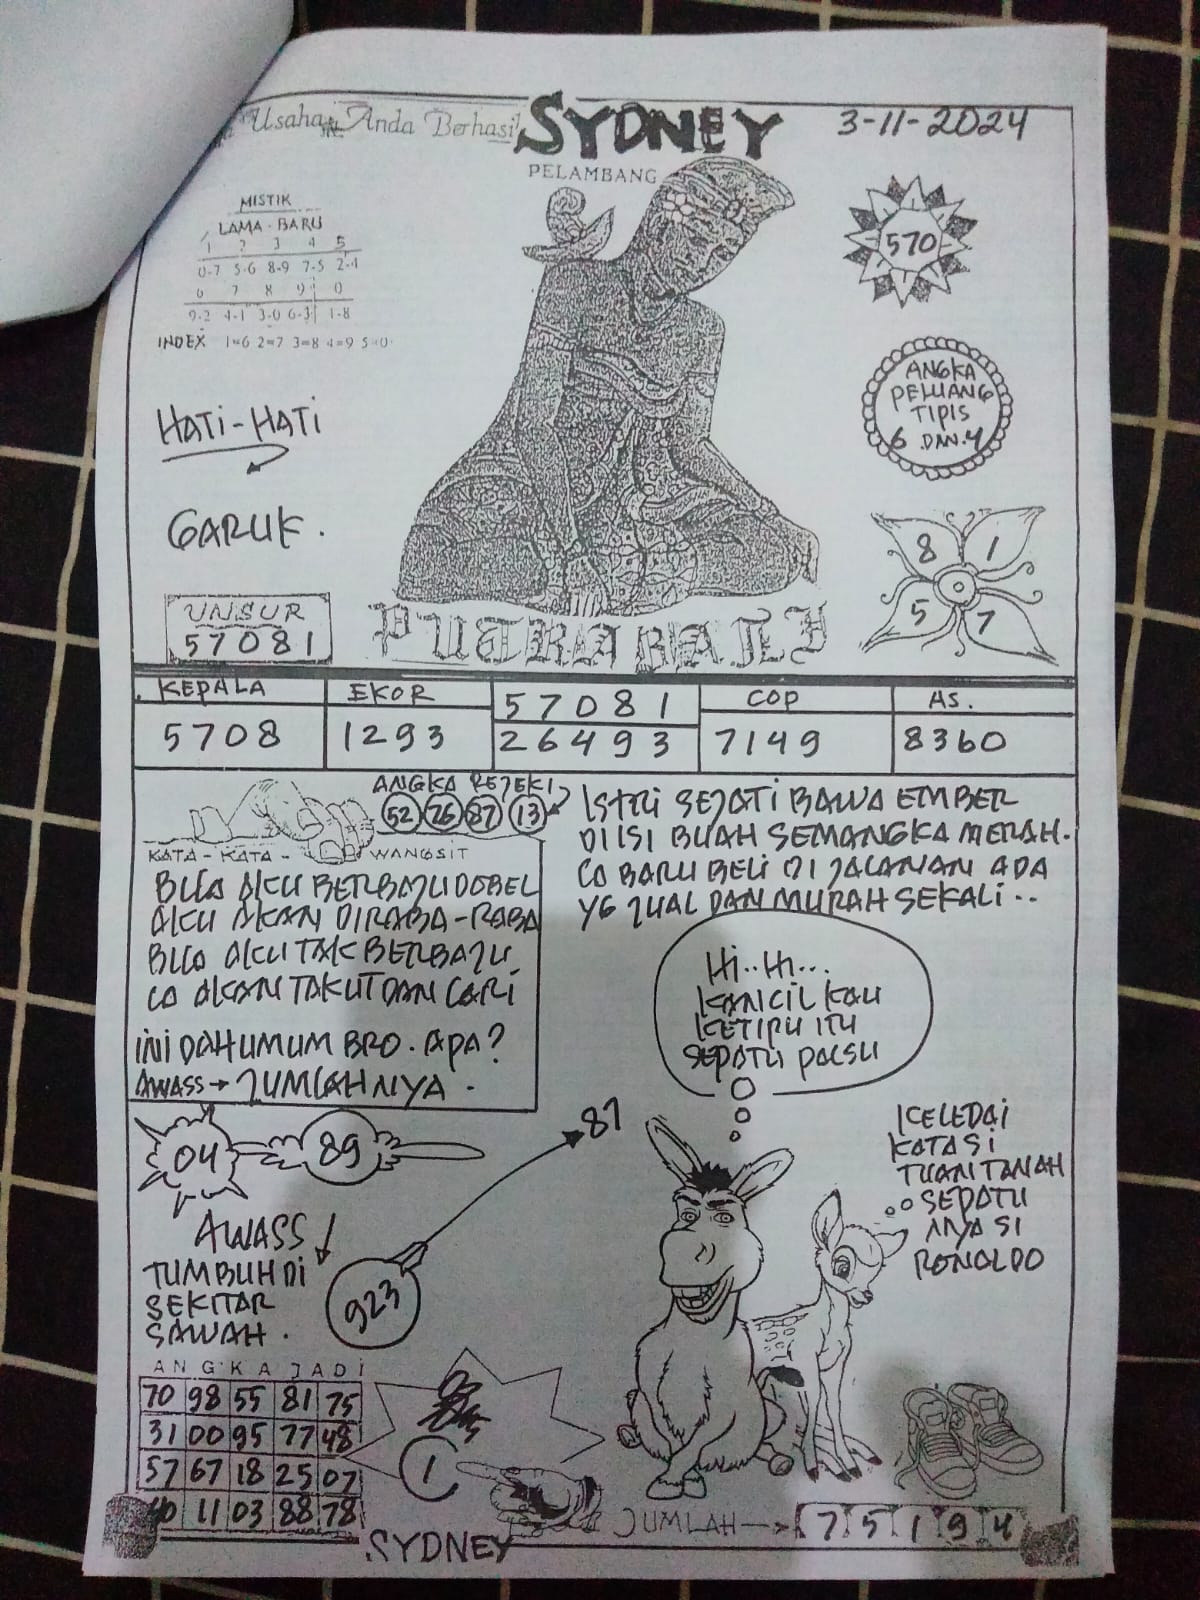 Usaha Anda Berhasil
SYDNEY
3-11-2024
PELAMBANG
MISTIK
LAMA - BARU
1 2 3 4 5
0-7 5-6 8-9 7-5 2-4
6 7 8 9 0
9-2 4-1 3-0 6-3 1-8
INDEX 1=6 2=7 3=8 4=9 5=0
570
ANGKA
PELUANG
TIPIS
6 DAN.4
HATI-HATI
GARUK.
8 1
5 7
UNSUR
57081
PUTRA BALI
KEPALA
5708
EKOR
1293
57081
26493
COP
7149
AS.
8360
ANGKA REJEKI
52 26 87 13
KATA - KATA - WANGSIT
BILA AKU BERBAJU DOBEL
AKU AKAN DIRABA-RABA
BILA AKU TAK BERBAJU
AKAN TAKUT DAN LARI
INI DAH UMUM BRO. APA?
AWASS → JUMLAHNYA.
ISTRI SEJATI BAWA EMBER
DI ISI BUAH SEMANGKA MERAH.
BARU BELI DI JALANAN ADA
YG JUAL DAN MURAH SEKALI..
Hi..Hi...
KANCIL KAU
KETIPU ITU
SEPATU PALSU
KELEDAI
KATA SI
TUAN TANAH
SEPATU
NYA SI
RONALDO
04 89
87
923
AWASS
TUMBUH DI
SEKITAR
SAWAH.
ANGKA JADI
70 98 55 81 75
31 00 95 77 48
57 67 18 25 07
11 03 88 78
1
JUMLAH → 7 5 1 9 4
SYDNEY